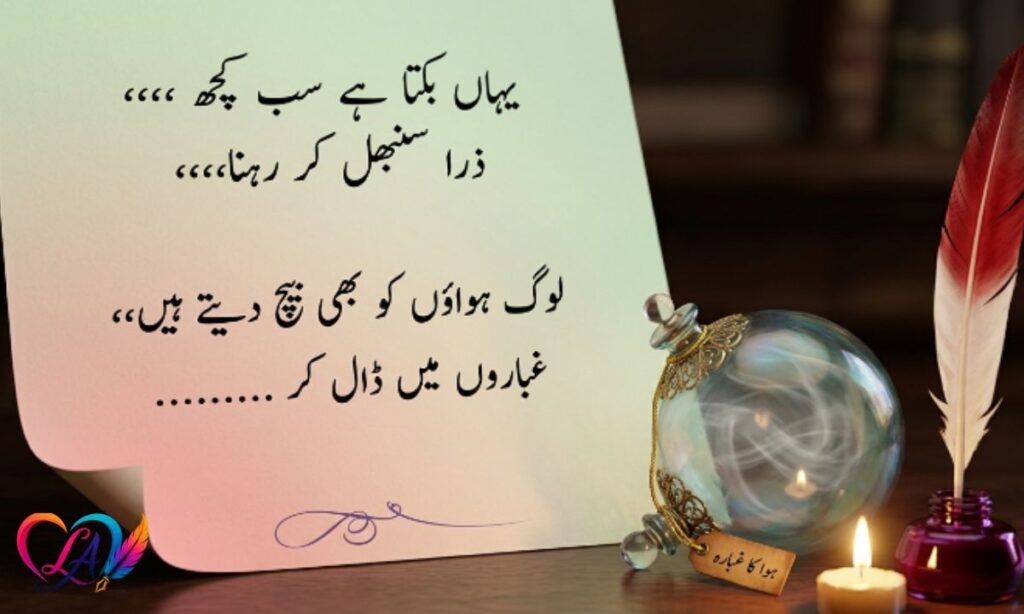 یہاں بکتا ہے سب کچھ ،،،،
ذرا سنبھل کر رہنا،،،،
لوگ ہواؤں کو بھی بیچ دیتے ہیں،،
غباروں میں ڈال کر .........
ہوا کا غبارہ
LA